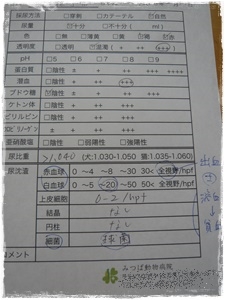 採尿方法 □穿刺 □カテーテル ☑自然
尿量 ☑十分 □不十分 ( ml)
色 □無 □薄黄 □黄
透明度 □透明 ☑混濁 ( + ++ +++ )
pH □5 □6 □7 □8 □9
蛋白質 □陰性 ± + ++ +++ ++++
潜血 □陰性 ± + ++ +++
ブドウ糖 □陰性 ± + ++ +++ ++++
ケトン体 □陰性 ± + ++ +++
ビリルビン □陰性 + ++ +++
□陰性 ± + ++ +++
亜硝酸塩 □陰性 □弱陽性 □強陽性
尿比重 >1,040 (犬:1.030-1.050 猫:1.035-1.060)
尿沈渣 赤血球 0 ~4 ~8 ~30 30< 全視野/hpf
白血球 0 ~5 ~20 ~50 50< 全視野/hpf
上皮細胞 0-2/hpf
結晶 なし
円柱 なし
細菌 球菌
コメント
みつば動物病院